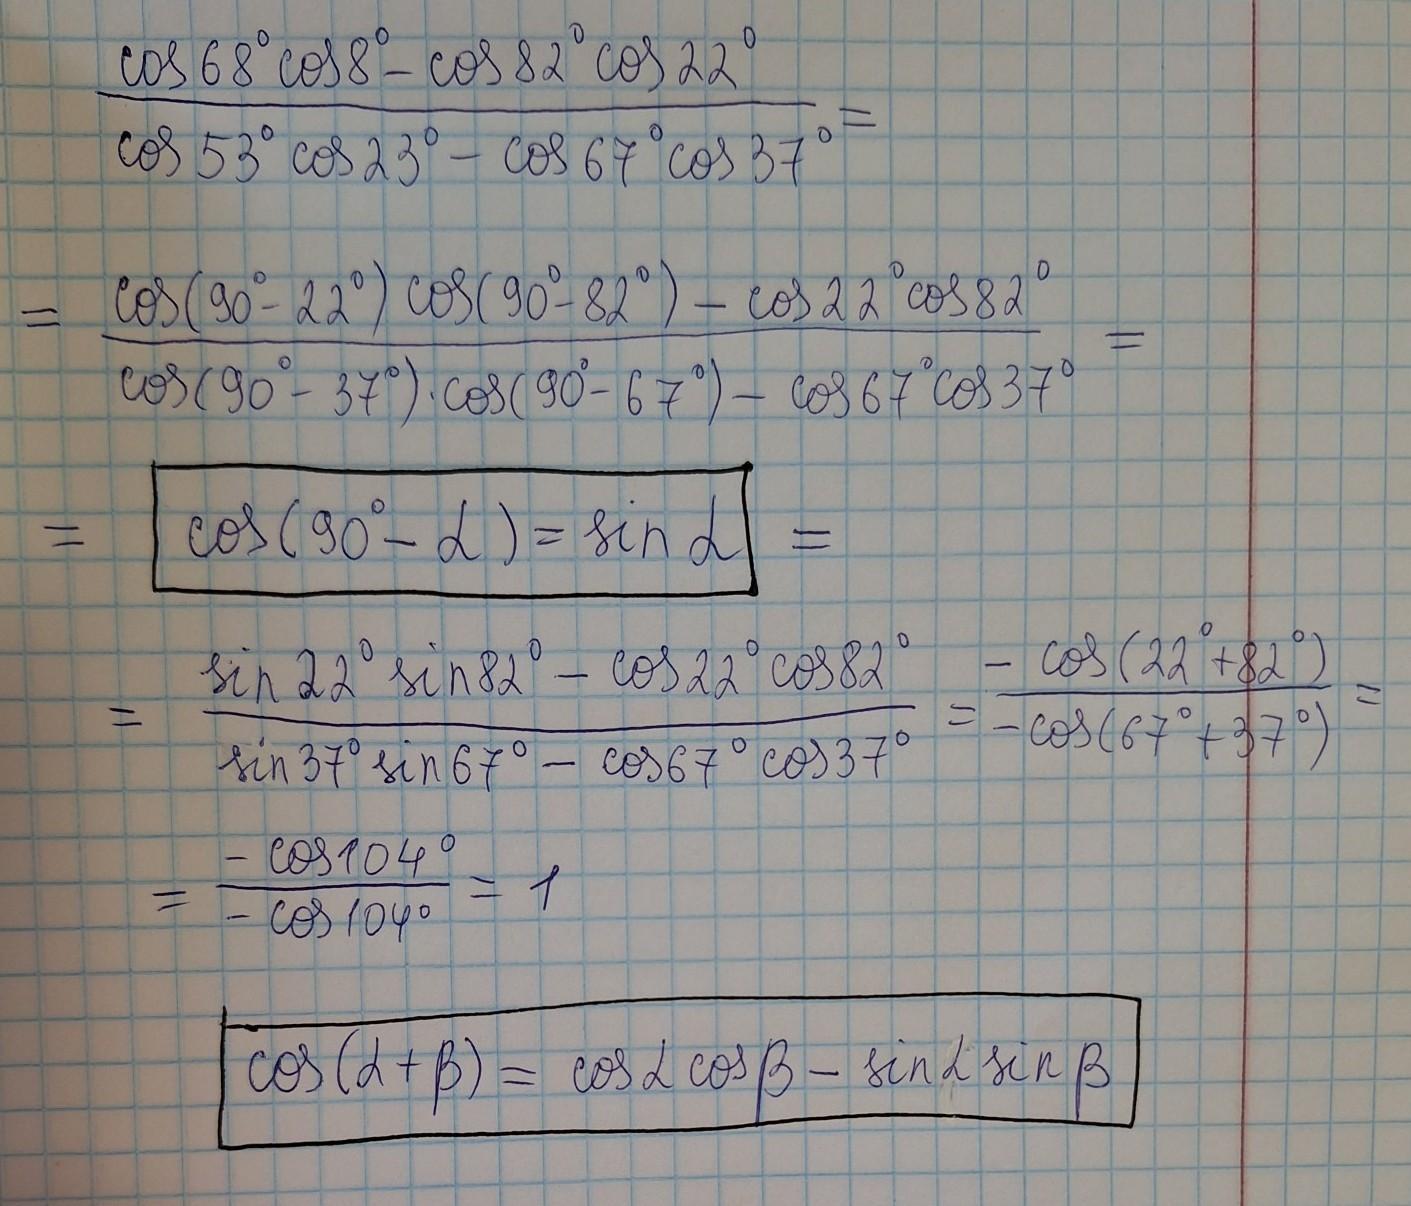 cos 68° cos 8° − cos 82° cos 22°
cos 53° cos 23° − cos 67° cos 37° =
= cos(90° − 22°) cos(90° − 82°) − cos 22° cos 82°
cos(90° − 37°) · cos(90° − 67°) − cos 67° cos 37° =
= cos(90° − α) = sin α =
= sin 22° sin 82° − cos 22° cos 82° = − cos(22° + 82°)
sin 37° sin 67° − cos 67° cos 37° − cos(67° + 37°) =
= − cos 104°
− cos 104° = 1
cos(α + β) = cos α cos β − sin α sin β